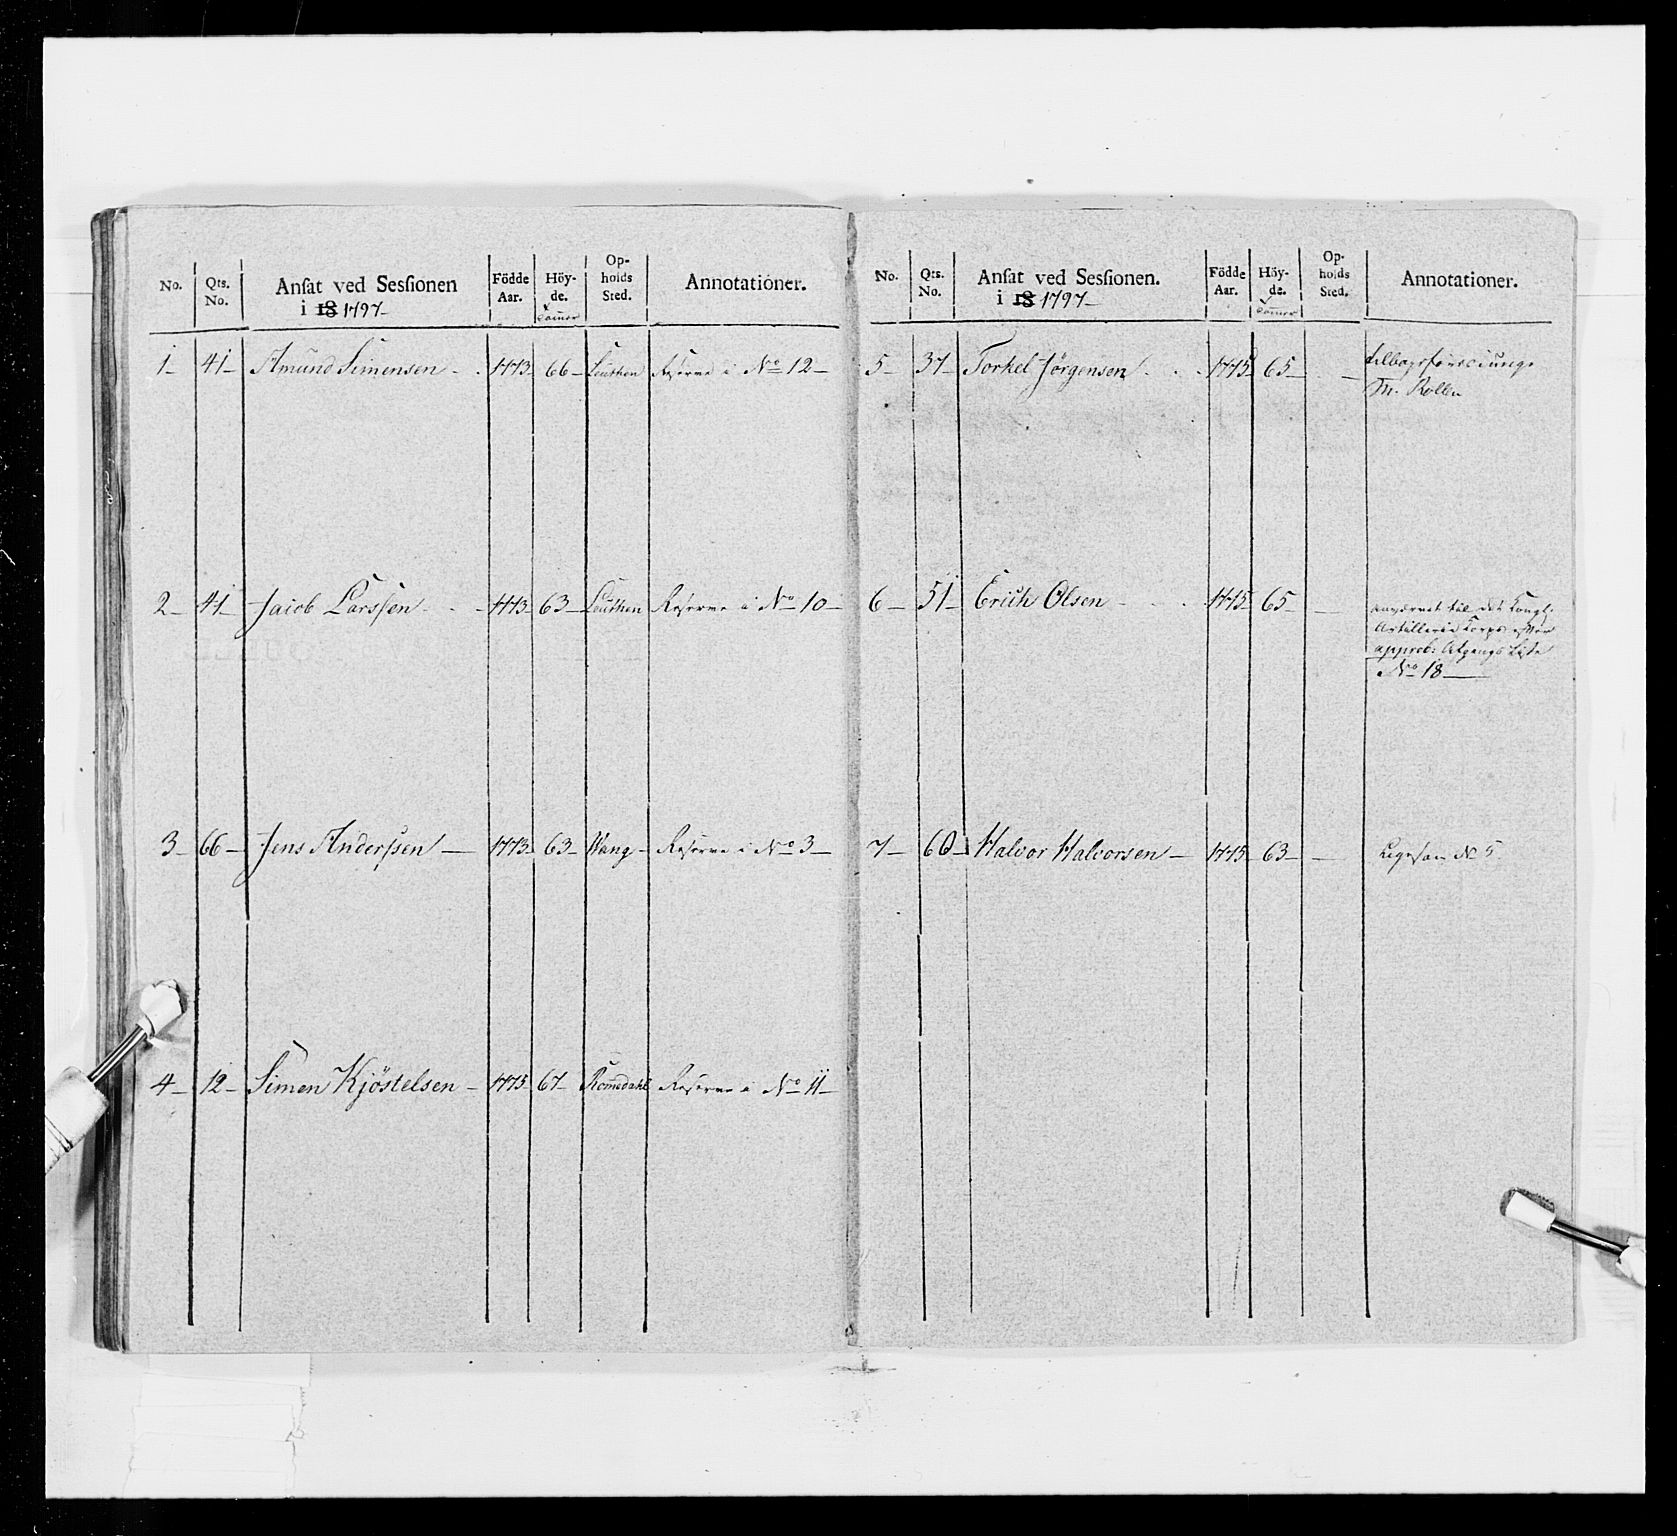 No. Qts. No. Ansat ved Sessionen i 18 1797 Födde Aar. Höy- de. Tommer Op- holds Sted. Annotationer.
1 - 41 - Amund Simensen - 1773 66 - Leuthen Reserve i No 12 -
2 - 41 - Jacob Larssen - 1773 63 - Leuthen Reserve i No 10 -
3 - 66 - Jens Anderssen - 1773 63 - Wang - Reserve i No 3 -
4 - 12 - Simen Kjöstelsen - 1775 67 - Romedahl Reserve i No 11 -
No. Qts. No. Ansat ved Sessionen. i 18 1797 - Födde Aar. Höy- de. Tommer Op- holds Sted. Annotationer.
5 - 37 - Torkel Jörgensen - 1775 65 -
M. Rollen
6 - 51 - Erich Olsen - 1775 65 - - til det Kongl:
Artillerie Corps efter
approb: Afgangs Liste
No 18 -
7 - 60 - Halvor Halvorsen - 1775 63 - - Ligesom No 5